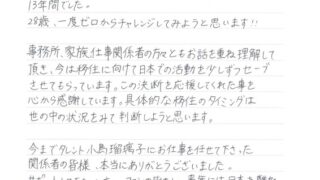 13年間でした。
28歳、一度ゼロからチャレンジしてみようと思います!!
事務所、家族、仕事関係者の方々ともお話を重ね理解して
頂き、今は移住に向けて日本での活動を少しずつセーブ
させてもらっています。この決断を応援してくれた事を
心から感謝しています。具体的な移住のタイミングは
世の中の状況をみて判断しようと思います。
今までタレント小島瑠璃子にお仕事を任せて下さった
関係者の皆様、本当にありがとうございました。